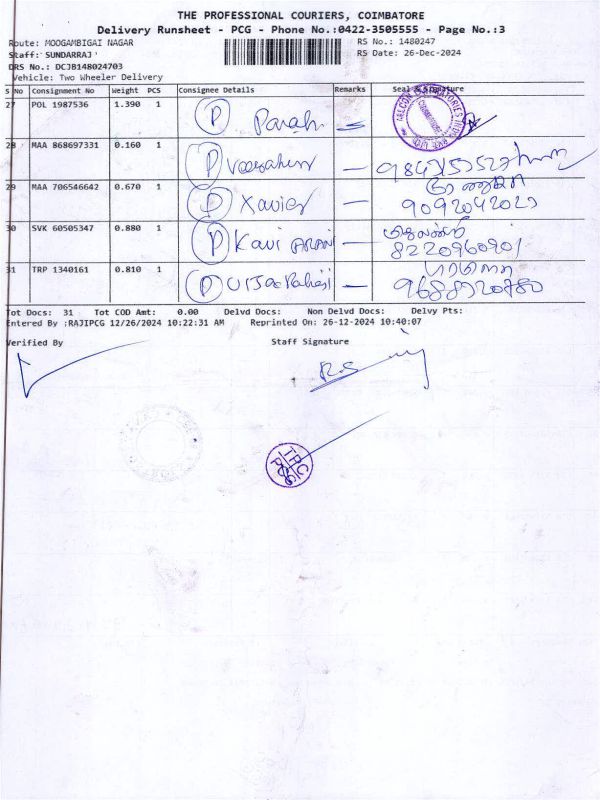 THE PROFESSIONAL COURIERS, COIMBATORE
Delivery Runsheet - PCG - Phone No.:0422-3505555 - Page No.:3
Route: MOOGAMBIGAI NAGAR RS No.: 1480247
Staff: SUNDARRAJ RS Date: 26-Dec-2024
DRS No.: DCJB148024703
Vehicle: Two Wheeler Delivery
S No Consignment No Weight PCS Consignee Details Remarks Seal & Signature
27 POL 1987536 1.390 1 P
28 MAA 868697331 0.160 1 P
29 MAA 706546642 0.670 1 P Xavier 9092042023
30 SVK 60505347 0.880 1 P Kavi 8220960901
31 TRP 1340161 0.810 1 P
Tot Docs: 31 Tot COD Amt: 0.00 Delvd Docs: Non Delvd Docs: Delvy Pts:
Entered By :RAJIPCG 12/26/2024 10:22:31 AM Reprinted On: 26-12-2024 10:40:07
Verified By Staff Signature
R.S